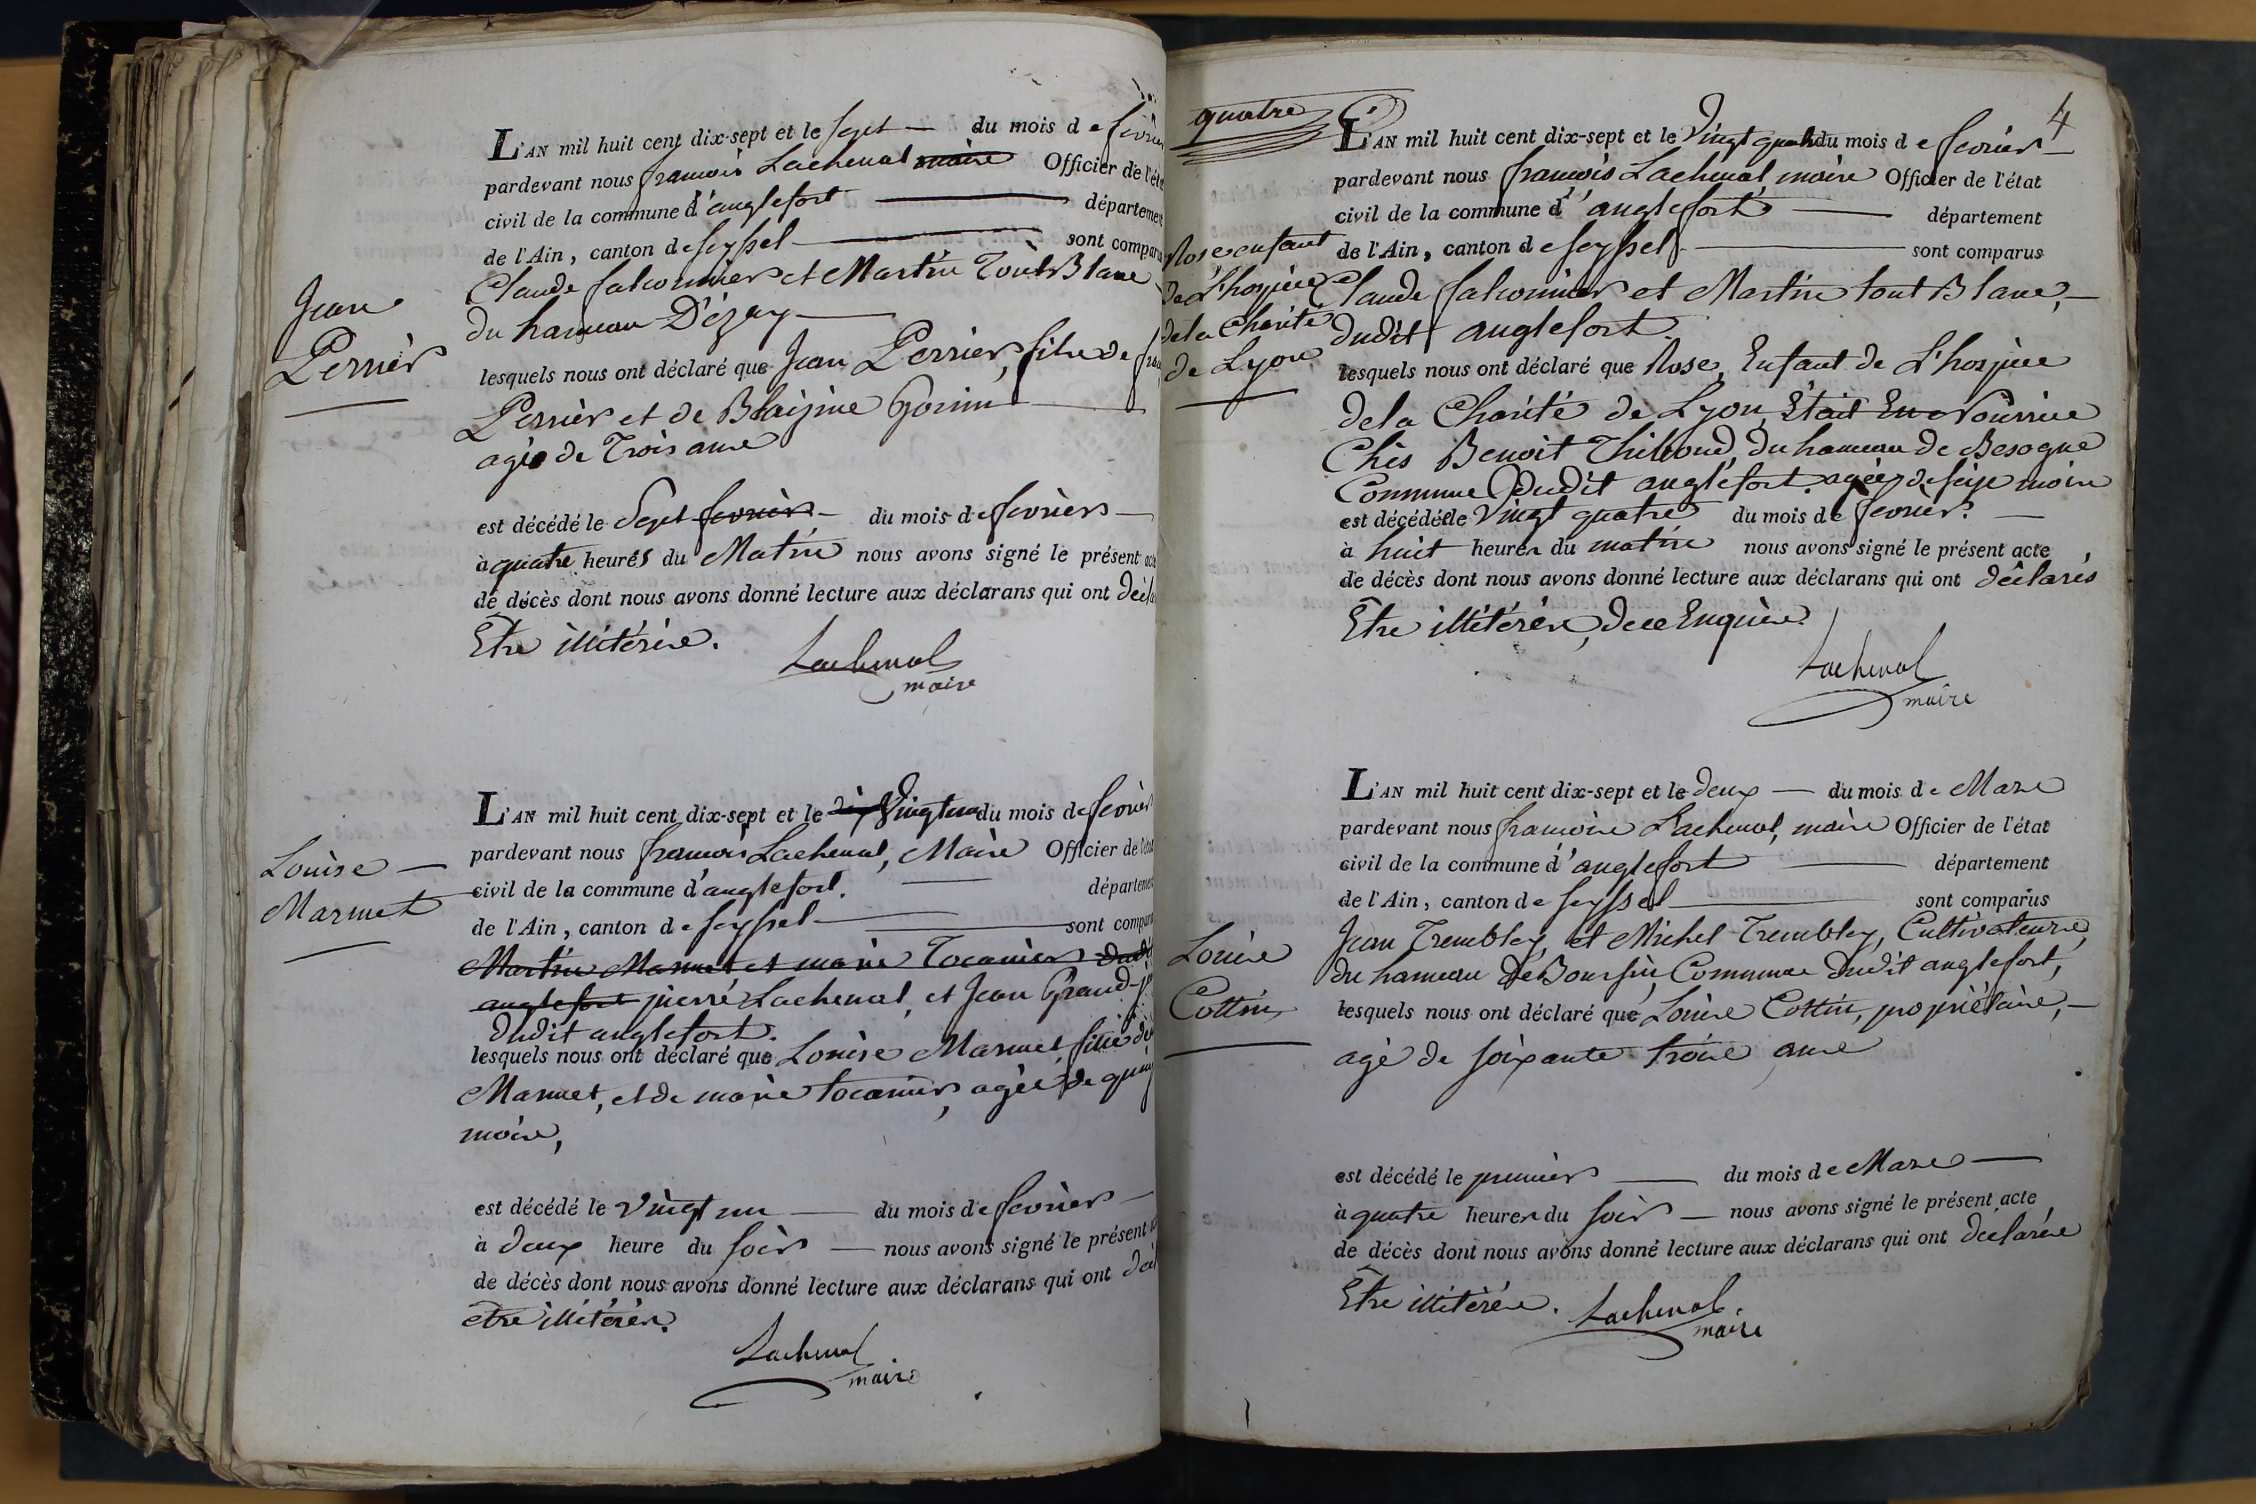 Jean
Perrier
L'AN mil huit cent dix-sept et le sept du mois de fevrier
pardevant nous francois Lachenal maire Officier de l'éta
civil de la commune d'anglefort département
de l'Ain, canton de seyssel sont comparu
Claude falconnier et Martin Tout Blanc
du hameau D'ézay
lesquels nous ont déclaré que Jean Perrier, fils de
Perrier et de Blaizine
agé de Trois ans
est décédé le Sept fevrier du mois de fevrier
à quatre heures du Matin nous avons signé le présent acte
de décès dont nous avons donné lecture aux déclarans qui ont décla
Etre illitérés.
Lachenal
maire
Louise
Marmet
L'AN mil huit cent dix-sept et le Vingt un du mois de fevrier
pardevant nous francois Lachenal, Maire Officier de l'état
civil de la commune d'anglefort. département
de l'Ain, canton de seyssel sont compar
Martin Marmet et marie Tocanier dudit
anglefort pierre Lachenal, et Jean Grand-
dudit anglefort.
lesquels nous ont déclaré que Louise Marmet, fille de
Marmet, et de marie tocanier, agée de
mois,
est décédé le vingt un du mois de fevrier
à deux heure du soir nous avons signé le présent
de décès dont nous avons donné lecture aux déclarans qui ont décl
etre illitérés.
Lachenal
maire
quatre
4
Rose enfant
de L'hospice
de la Charité
de Lyon
L'AN mil huit cent dix-sept et le Vingt quatre du mois de fevrier
pardevant nous francois Lachenal, maire Officier de l'état
civil de la commune d'anglefort département
de l'Ain, canton de seyssel sont comparus
Claude falconnier et Martin tout Blanc,
dudit anglefort.
lesquels nous ont déclaré que Rose, Enfant de L'hospice
de la Charité de Lyon, Etait En Nourrice
Chés Benoit Thiboud, du hameau de Besogne
Commune dudit anglefort. agée de seize mois
est décédée le Vingt quatre du mois de fevrier.
à huit heures du matin nous avons signé le présent acte
de décès dont nous avons donné lecture aux déclarans qui ont déclarés
Etre illitérés, de ce Enquis.
Lachenal
maire
Louise
Cottin
L'AN mil huit cent dix-sept et le deux du mois de Mars
pardevant nous francois Lachenal, maire Officier de l'état
civil de la commune d'anglefort département
de l'Ain, canton de seyssel sont comparus
Jean Trembley, et Michel Trembley, Cultivateurs,
du hameau de Boursin, Commune dudit anglefort,
lesquels nous ont déclaré que Louise Cottin, propriétaire,
agé de soixante trois ans
est décédé le premier du mois de Mars
à quatre heures du soir nous avons signé le présent acte
de décès dont nous avons donné lecture aux déclarans qui ont déclarés
Etre illitérés.
Lachenal.
maire